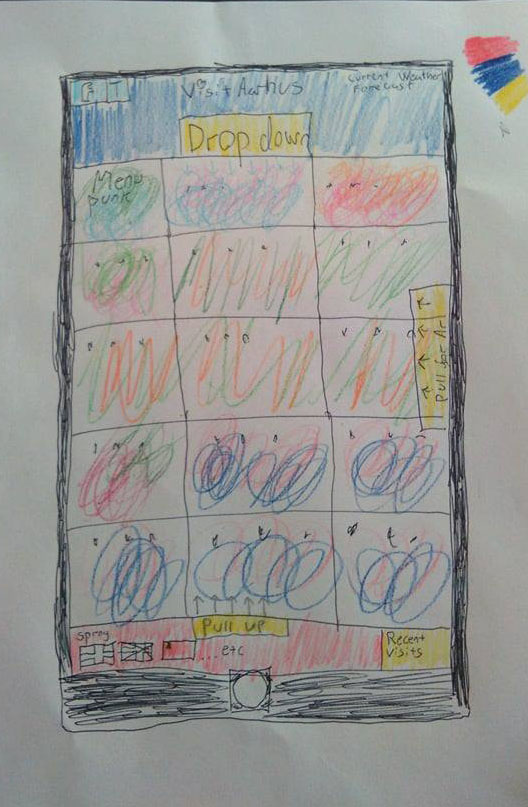 Visit Aarhus
Current Weather
Forecast
Drop down
Menu
punk
Pull for Ar
PULL UP
Sprog
... etc
Recent
Visits